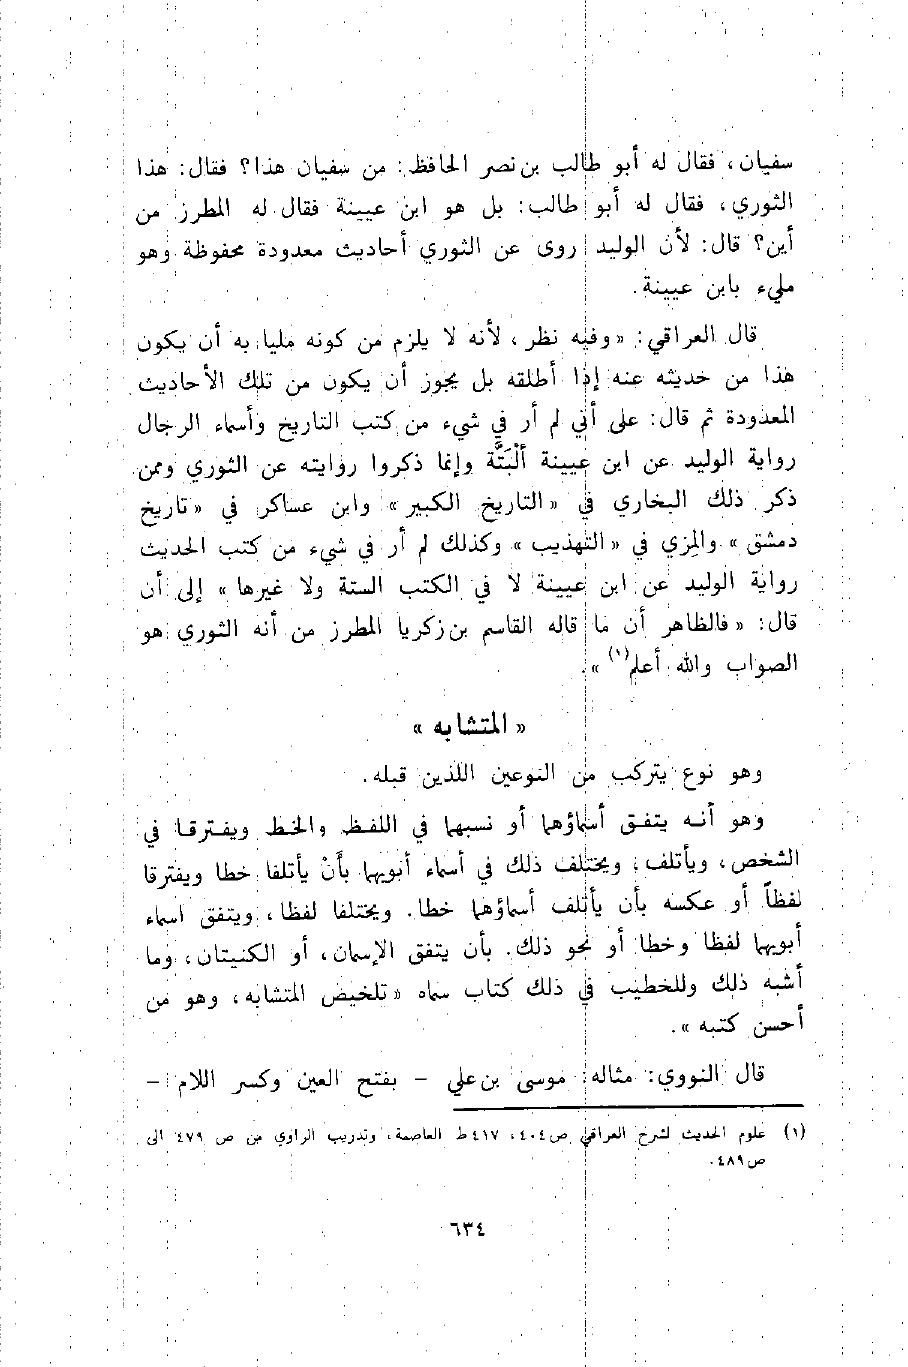 سفيان، فقال له أبو طالب بن نصر الحافظ: من سفيان هذا؟ فقال: هذا
الثوري، فقال له أبو طالب: بل هو ابن عيينة فقال له المطرز من
أين؟ قال: لأن الوليد روى عن الثوري أحاديث معدودة محفوظة وهو
مليء بابن عيينة.
قال العراقي: «وفيه نظر، لأنه لا يلزم من كونه مليا به أن يكون
هذا من حديثه عنه إذا أطلقه بل يجوز أن يكون من تلك الأحاديث
المعدودة ثم قال: على أني لم أر في شيء من كتب التاريخ وأسماء الرجال
رواية الوليد عن ابن عيينة ألْبَتَّة وإنما ذكروا روايته عن الثوري وممن
ذكر ذلك البخاري في «التاريخ الكبير» وابن عساكر في «تاريخ
دمشق» والمِزي في «التهذيب» وكذلك لم أر في شيء من كتب الحديث
رواية الوليد عن ابن عيينة لا في الكتب الستة ولا غيرها» إلى أن
قال: «فالظاهر أن ما قاله القاسم بن زكريا المطرز من أنه الثوري هو
الصواب والله أعلم(١)».
«المتشابه»
وهو نوع يتركب من النوعين اللذين قبله.
وهو أنه يتفق أسماؤهما أو نسبهما في اللفظ والخط ويفترقا في
الشخص، ويأتلف، ويختلف ذلك في أسماء أبويهما بأَنْ يأتلفا خطا ويفترقا
لفظاً أو عكسه بأن يأتلف أسماؤهما خطا. ويختلفا لفظا، ويتفق اسماء
أبويهما لفظا وخطا أو نحو ذلك. بأن يتفق الإسمان، أو الكنيتان، وما
أشبه ذلك وللخطيب في ذلك كتاب سماه «تلخيص المتشابه، وهو من
أحسن كتبه».
قال النووي: مثاله: موسى بن علي - بفتح العين وكسر اللام -
(١) علوم الحديث لشرح العراقي ص٤٠٤، ٤١٧ ط العاصمة، وتدريب الراوي من ص ٤٧٩ الى
ص٤٨٩.
٦٣٤